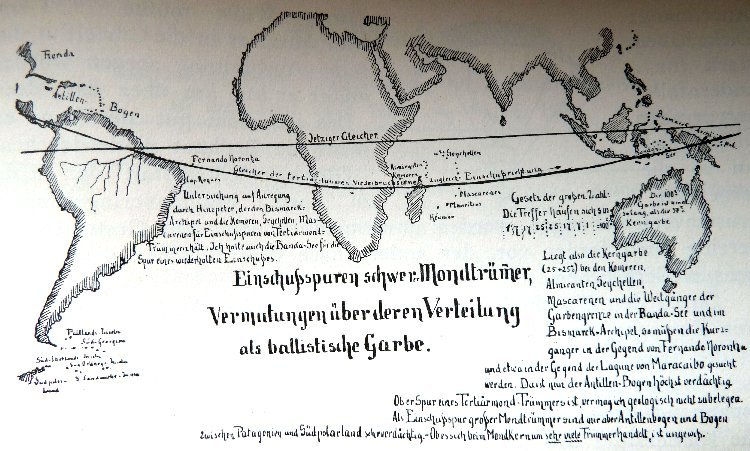 Florida
Antillen-
Bogen
Jetziger Gleicher
Fernando Noronha
Gleicher der tertiär-lunaren Niederbruchs
zugleich Einschußrichtung
Seychellen
Komoren
Mascarenen
Mauritius
Réunion
Untersuchung auf Anregung
durch Hinzpeter, der den Bismarck-
Archipel und die Komoren, Seychellen, Mas-
carenen für Einschußspuren von Tertiärmond-
Trümmern hält. Ich halte auch die Banda-See für die
Spur eines wiederholten Einschußes.
Gesetz der großen Zahl:
Die Treffer häufen sich so:
Die 100%
Garbe ist
solang, als die 50%
Kerngarbe
Liegt also die Kerngarbe
(25+25%) bei den Komoren,
Almiranten, Seychellen,
Mascarenen und die Weitgänger der
Garbengrenze in der Banda-See und im
Bismarck-Archipel, so müßen die Kurz-
gänger in der Gegend von Fernando Noronha
und etwa in der Gegend der Lagune von Maracaibo gesucht
werden. Da ist nun der Antillen-Bogen höchst verdächtig.
Einschußspuren schwerer Mondtrümmer,
Vermutungen über deren Verteilung
als ballistische Garbe.
Falklands-Inseln
Süd-Georgien
Süd-Shetlands-Inseln
Süd-Orkney-Inseln
Südpolar-
land
S. Sandwichs-Inseln
Ob er Spur eines Tertiärmond-Trümmers ist, vermag ich geologisch nicht zu belegen.
Als Einschußspur großer Mondtrümmer sind mir aber Antillenbogen und Bogen
zwischen Patagonien und Südpolarland sehr verdächtig. - Ob es sich beim Mondkern um sehr viele Trümmer handelt, ist ungewiß.